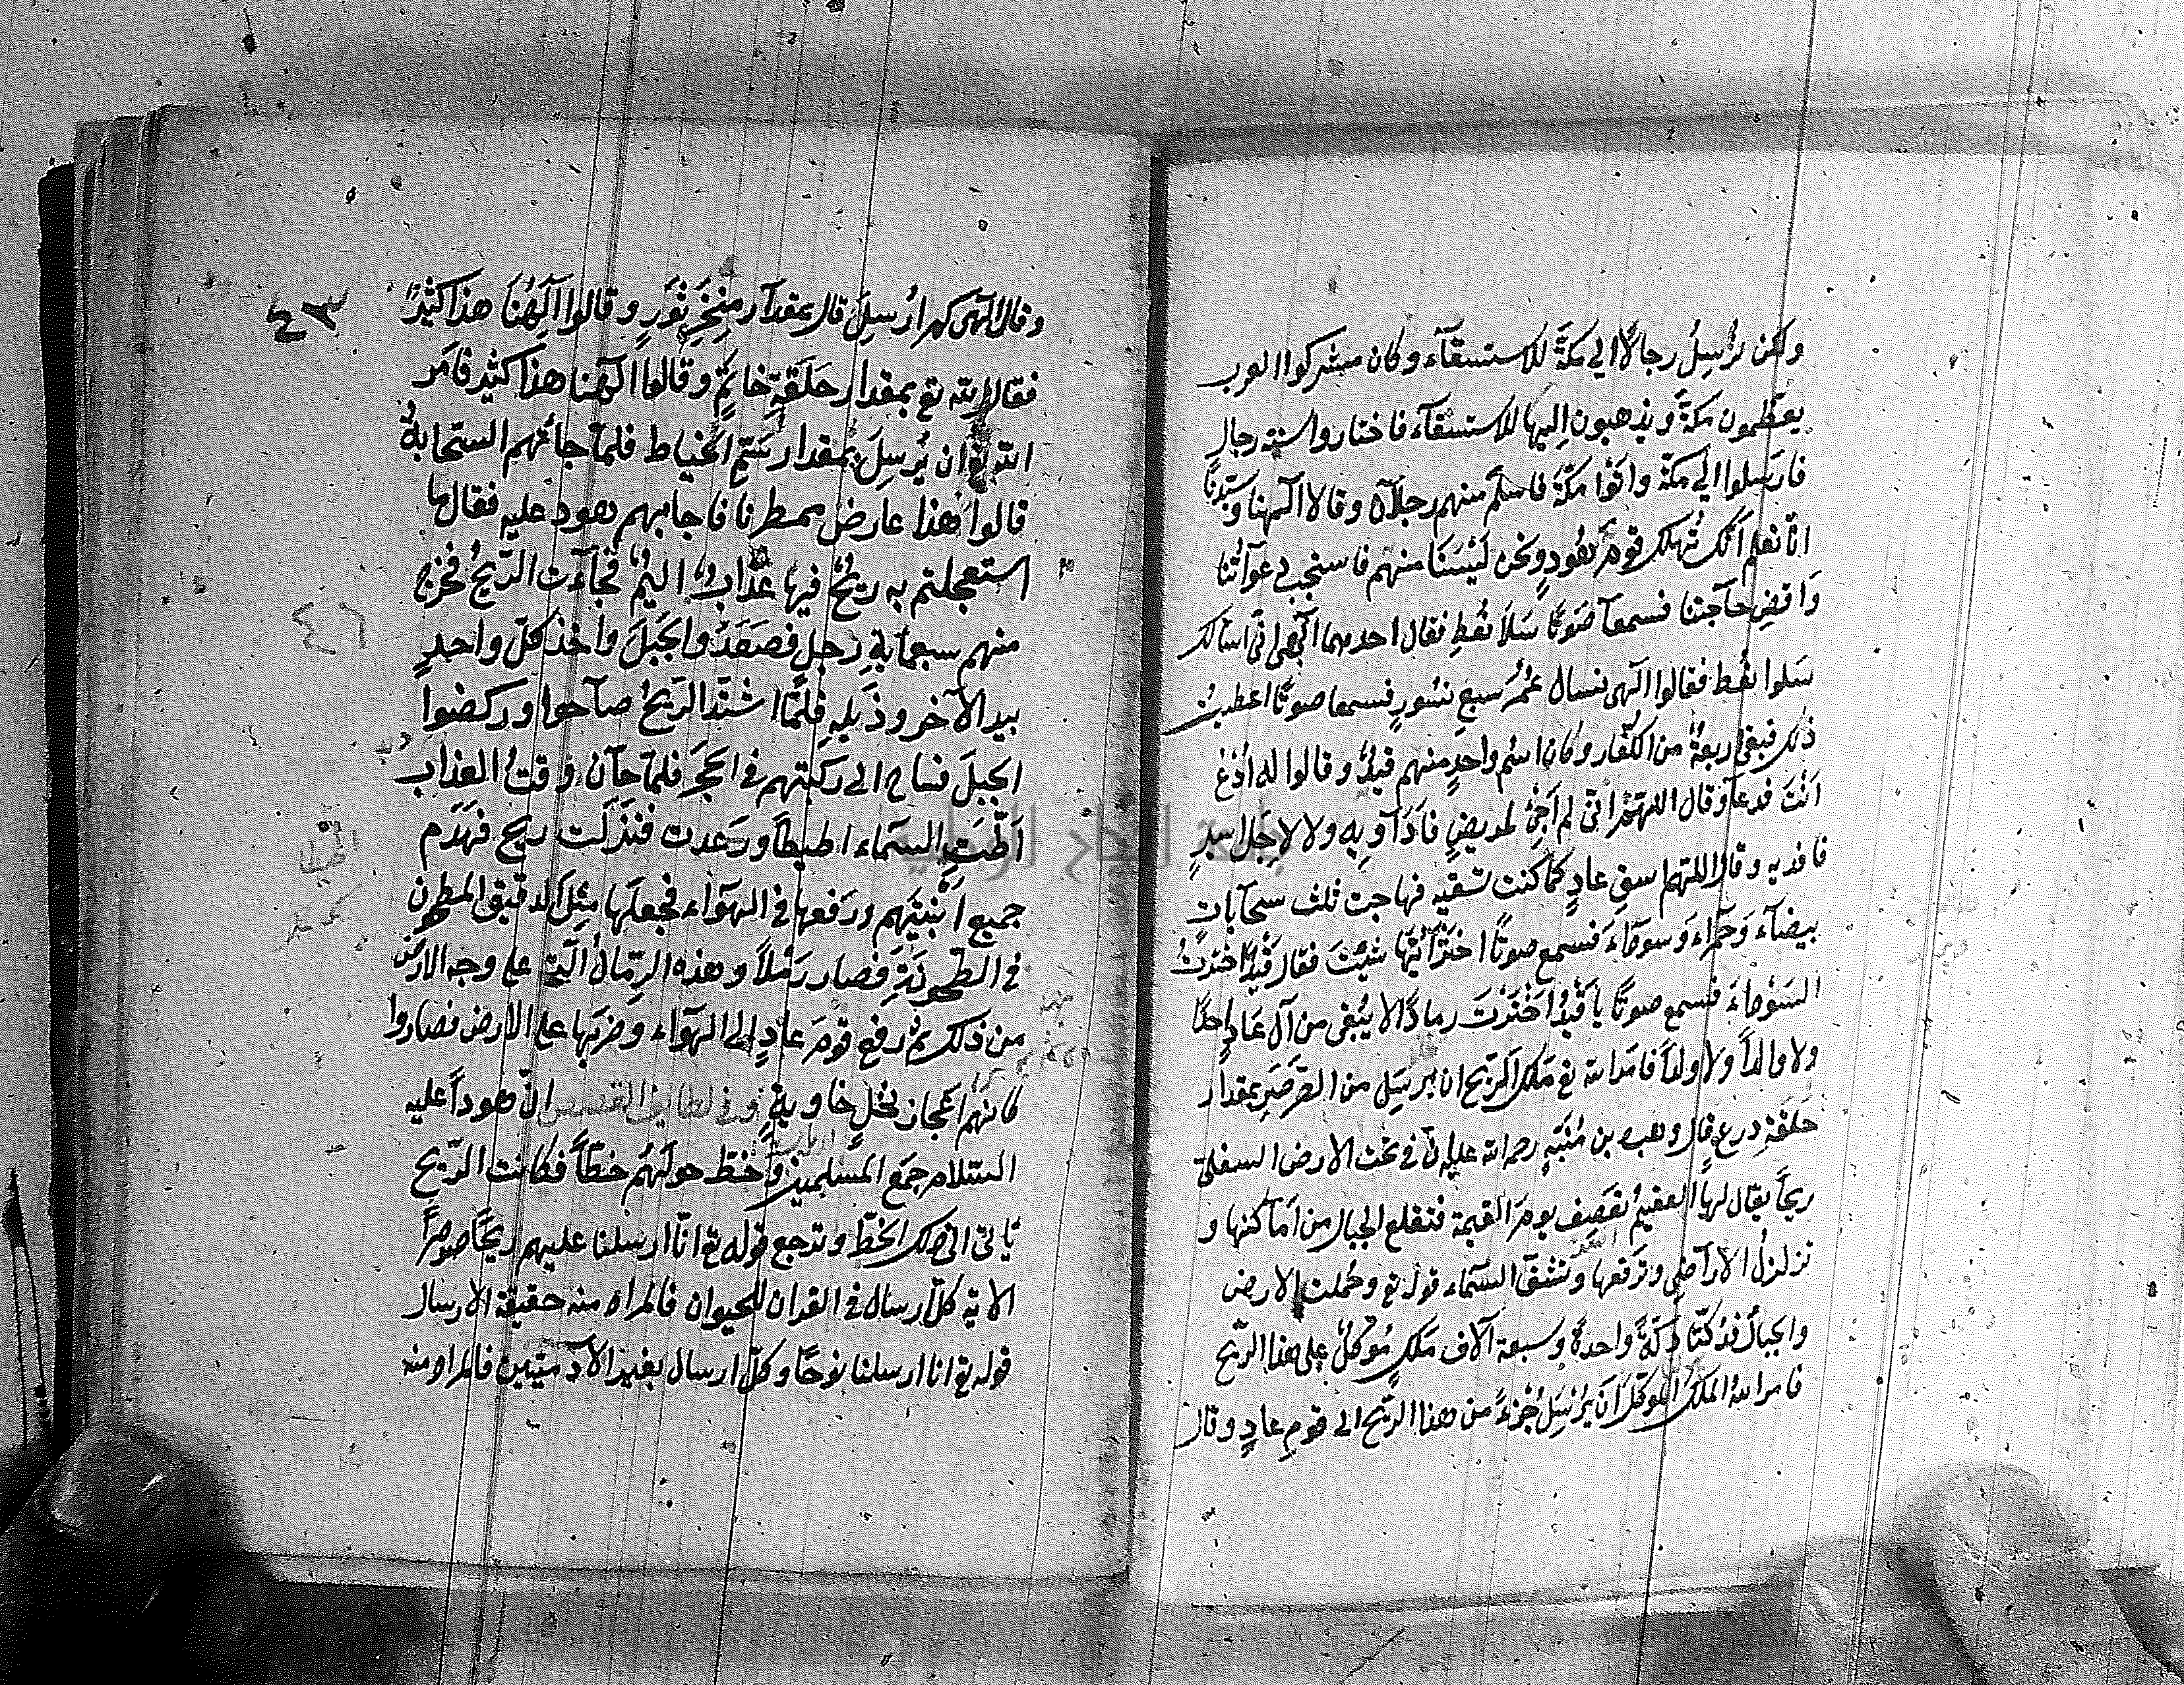 ولكن نُرْسِلُ رجالاً الي مكّةَ للاستسقآء وكان مشركوا العرب
يعظّمون مكةَ ويذهبون اليها للاستسقآء فاختاروا ستة رجالٍ
فارسلوا الي مكّة واتَوْا مكّةَ فاسلم منهم رجلان وقالا الٓهنا وسيّدنا
انّا نعلم انّك تُهلك قوم هُودٍ ونحن لَيْسَنَا منهم فاستجب دعوآتُنا
واقضِ حآجتنا فسمعا صَوتًا سَلاَ نُعْطِ فقال احدهما الٓهى انّى اسالك
سَلوا نُعْط فقالوا الٓهى نسال عُمْرَ سَبعِ نسُورٍ فسمعا صوتًا اعطيتُ
ذلك فبقى اربعةٌ من الكفّار وكان اسْم واحدٍ منهم قَيْلٌ وقالوا له اُدْعُ
اَنْتَ فدعآ وقال اللهمّ انّى لم اَجِئْ لمريضٍ فاُدَآوِيهِ ولا لاجل اسيرٍ
فافديه وقال اللهم اسقِ عادٍ كما كنت تسْقيه فهاجت ثلث سحآباتٍ
بيضآء وحَمْرآء وسودآء فسمع صوتًا اختَرْ ايَّهَا شئْتَ فقال قَيْلٌ اختَرْتُ
السّوْدآءَ فسمع صوتًا يا قَيْلُ اخْتَرْتَ رمادًا لا يَبْقى من آل عَادٍ احدًا
ولا والداً ولا ولداً فامَر الله تع مَلَك الرّيح ان يُرسِلَ من الصّرصَرِ بمقدار
حَلقَةِ دِرعٍ قال وهب بن مُنَبّهٍ رحمه الله عليه انّ في تحت الارض السفلى
ريحًا يقال لها العقيم تعصِف يومَ القيمة فتقلع الجبال من اَماكنها و
تزلزلُ الاراضى وترفعها وتنشقّ السّمآء قوله تع وحُملت الارض
والجبالُ فدُكّتا دكّةً واحدةً وسبعة آلاف مَلَكٍ مُوَكّلٌ على هذا الرّيح
فامر اللهُ الملكَ الموكّلَ اَن يُرْسِلَ جُزءً من هذا الرّيح الى قومِ عادٍ وقال
٤٣
وقال الٓهى كم اُرْسِلَ قال بمقدآر مِنْخَرِ ثَوْرٍ وقالوا آلِهُنَا هذا كثيرٌ
فقال الله تع بمقدار حَلَقةِ خاتمٍ وقالوا الٓهنا هذا كثير فامَر
الله تع ان يُرسِلَ بمقدار سَمّ الخياط فلمّا جائتهم السّحابةُ
قالوا هذا عارض ممطرنا فاجابهم هود عليه فقال ما
استعجلتم به ريحٌ فيها عذابٌ اليمٌ فجآءت الرّيحُ فخرج
منهم سبعمآيةِ رَجلٍ فصَعَدُوا الجَبَلَ واخذ كلّ واحدٍ
بيد الآخر وذَيلِهِ فلمّا اشتدّ الرّيحُ صآحوا وركضوا
الجبلَ فساخ الى ركبتهم في الحَجَر فلمّا حآن وقتُ العذاب
اَطّتِ السّمآء اطيطاً ورَعدت فنَزَلت ريح فهَدَم
جميع اَبْنيَتِهم ورَفعها في الهوآء فجعلها مِثلَ الدّقيق المطحون
في الطّحونَةِ فصار رَمْلاً وهذه الرّمالُ الّتى على وجه الارض
من ذلك ثم رفع قومَ عادٍ الى الهوَآء وضَربَها على الارض فصاروا
كانّهم اعجاز نخلٍ خاويةٍ وفى لطائف القصص انّ هوداً عليه
السّلام جَمَعَ المُسْلِمينَ وخَطّ حولَهُم خطّاً فكانت الرّيح
تاتى الى ذلك الخطّ وترجع قوله تع انّا ارسلنا عليهم ريحًا صرصرًا
الاية كلّ ارسال في القران للحيوان فالمراد منه حقيقة الارسال
قوله تع انا ارسلنا نوحًا وكلّ ارسال بغير الآدميّين فالمراد منه
٤٦